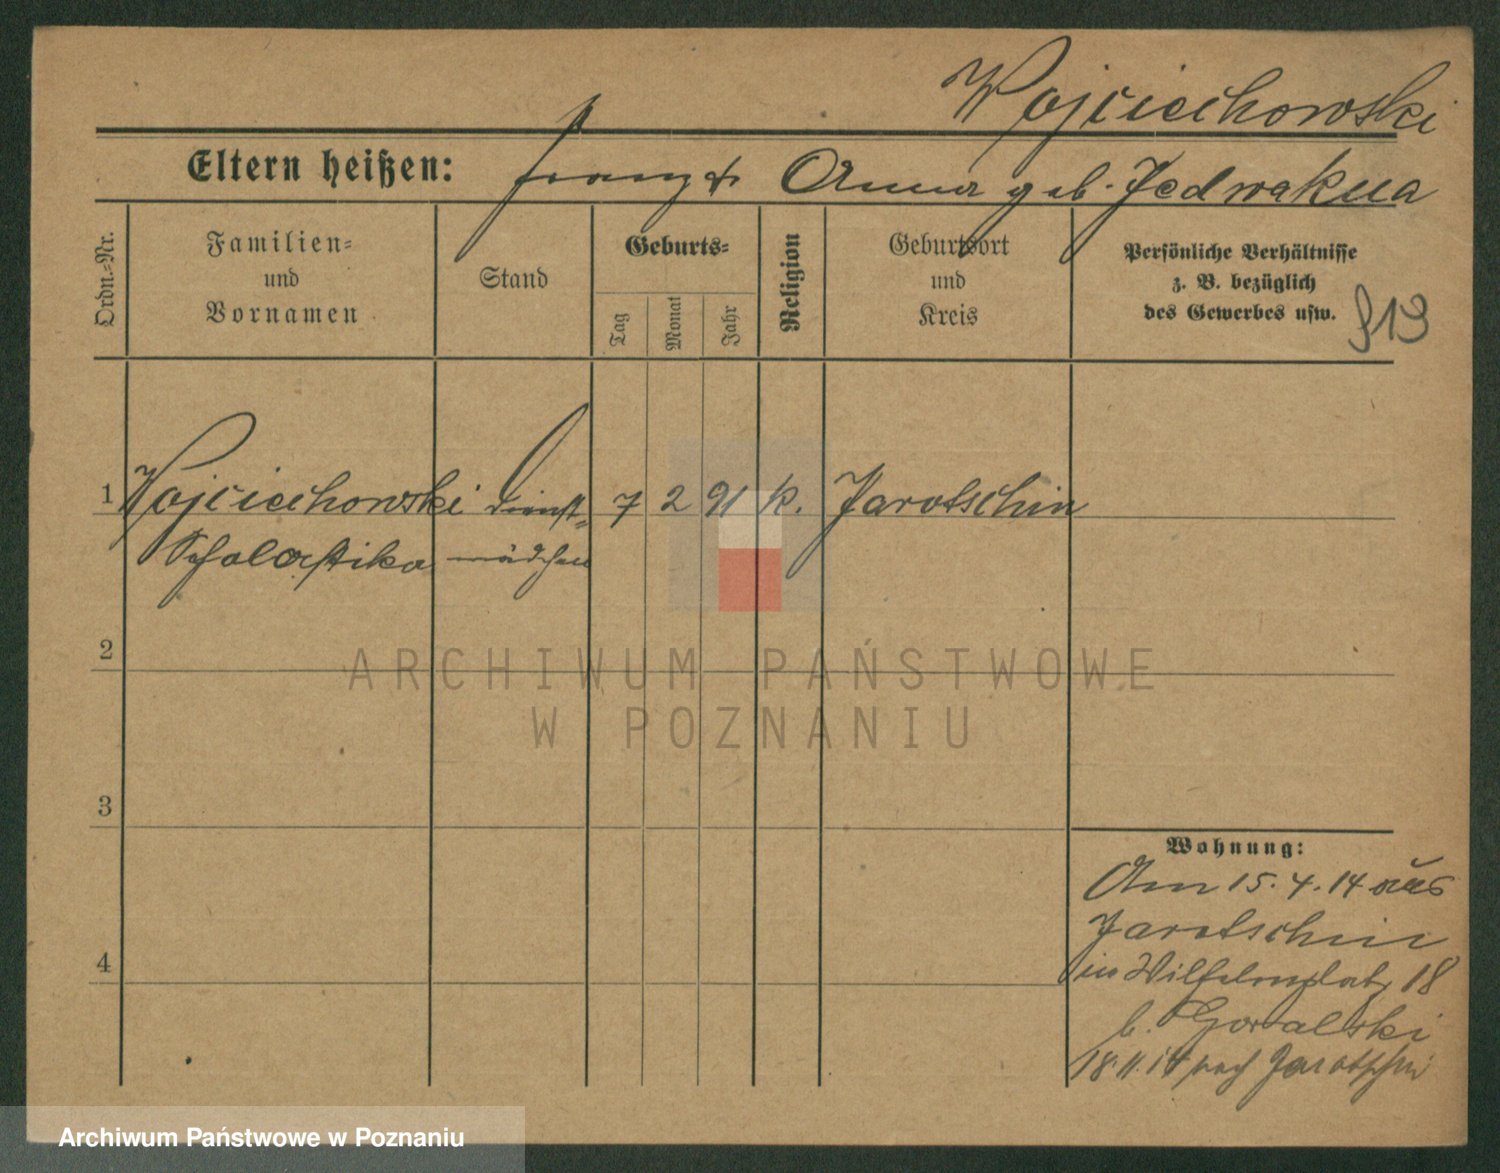 Wojciechowski
Eltern heißen: Franz & Anna geb. Jedwakna
Ordn.=Nr.
Familien=
und
Vornamen
Stand
Geburts=
Tag
Monat
Jahr
Religion
Geburtsort
und
Kreis
Persönliche Verhältnisse
z. B. bezüglich
des Gewerbes usw.
913
1 Wojciechowski Dienst= 7 2 91 k. Jarotschin
Scholastika mädchen
2
3
4
Wohnung:
Am 15.4.14 aus
Jarotschin
in Wilhelmplatz 18
b. Gowalski
18.11.14 nach Jarotschin
ARCHIWUM PAŃSTWOWE
W POZNANIU
Archiwum Państwowe w Poznaniu